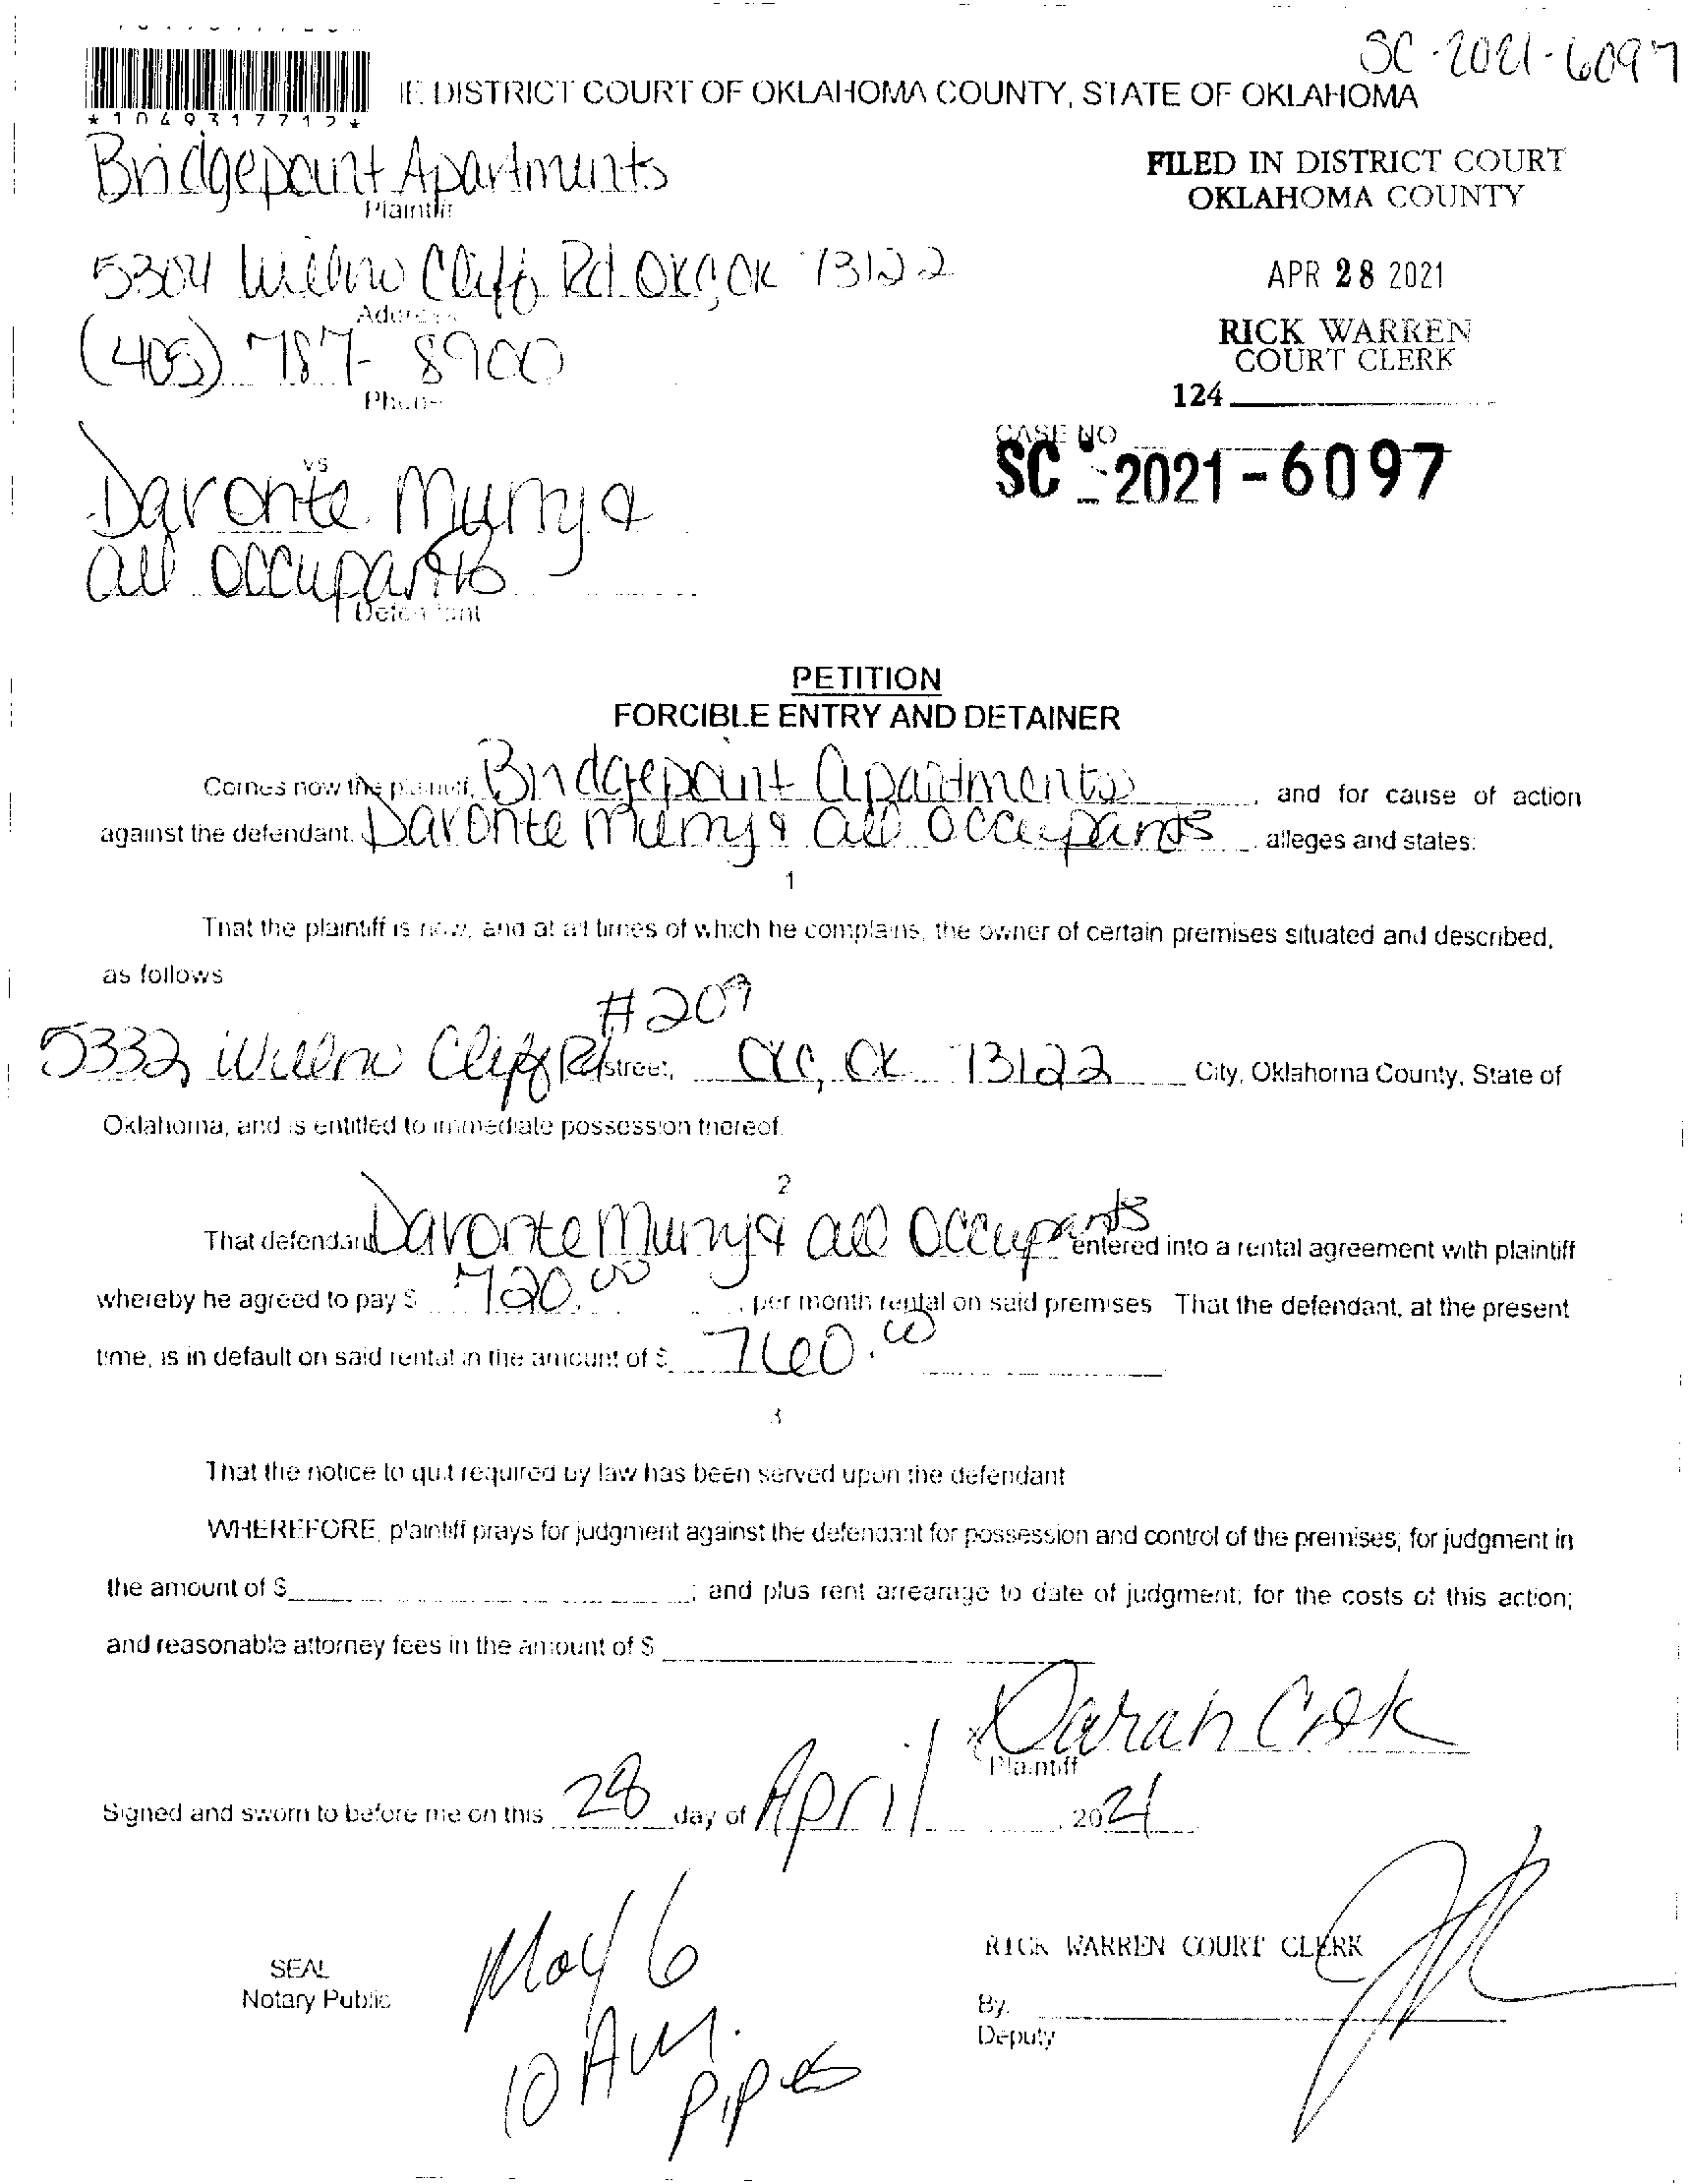 SC-2021-6097
*1049317712*
IE DISTRICT COURT OF OKLAHOMA COUNTY, STATE OF OKLAHOMA
Bridgepoint Apartments
Plaintiff
FILED IN DISTRICT COURT
OKLAHOMA COUNTY
5304 Willow Cliff Rd OKC, OK 73122
Address
APR 28 2021
(405) 787-8900
Phone
RICK WARREN
COURT CLERK
124
CASE NO
SC-2021-6097
vs
Davonte Murry &
all occupants
Defendant
PETITION
FORCIBLE ENTRY AND DETAINER
Comes now the plaintiff, Bridgepoint Apartments, and for cause of action
against the defendant, Davonte Murry & all occupants alleges and states:
1
That the plaintiff is now, and at all times of which he complains, the owner of certain premises situated and described,
as follows
#209
5332 Willow Cliff Rd street, OKC, OK 73122 City, Oklahoma County, State of
Oklahoma, and is entitled to immediate possession thereof.
2
That defendant Davonte Murry & all occupants entered into a rental agreement with plaintiff
whereby he agreed to pay $ 720.00 per month rental on said premises That the defendant, at the present
time, is in default on said rental in the amount of $ 760.00
3
That the notice to quit required by law has been served upon the defendant
WHEREFORE, plaintiff prays for judgment against the defendant for possession and control of the premises; for judgment in
the amount of $ ; and plus rent arrearage to date of judgment; for the costs of this action;
and reasonable attorney fees in the amount of $
Plaintiff
Signed and sworn to before me on this 28 day of April, 2021
May 6
RICK WARREN COURT CLERK
SEAL
Notary Public
By.
Deputy
10 AM.
Pipes